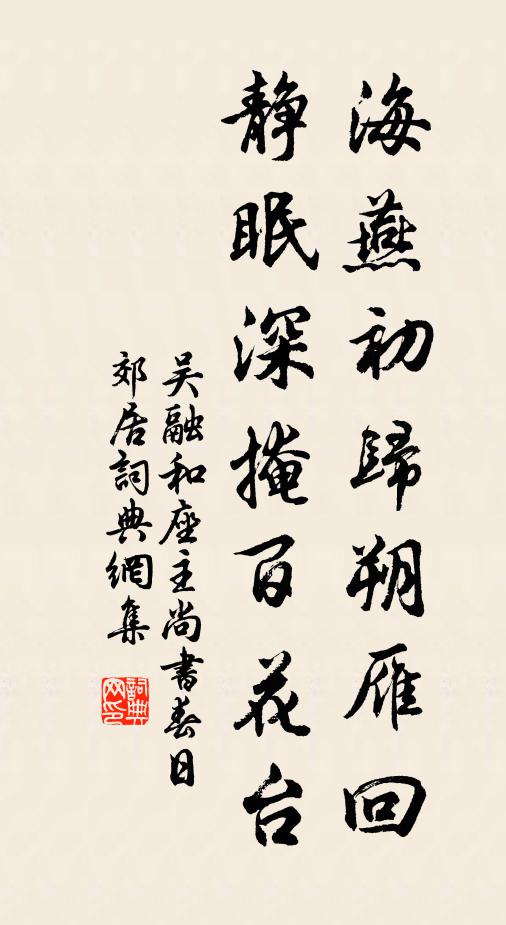 海燕初歸朔雁回
静眠深掩百花台
吴融和座主尚書春日
郊居詞典網集
詞典
网印